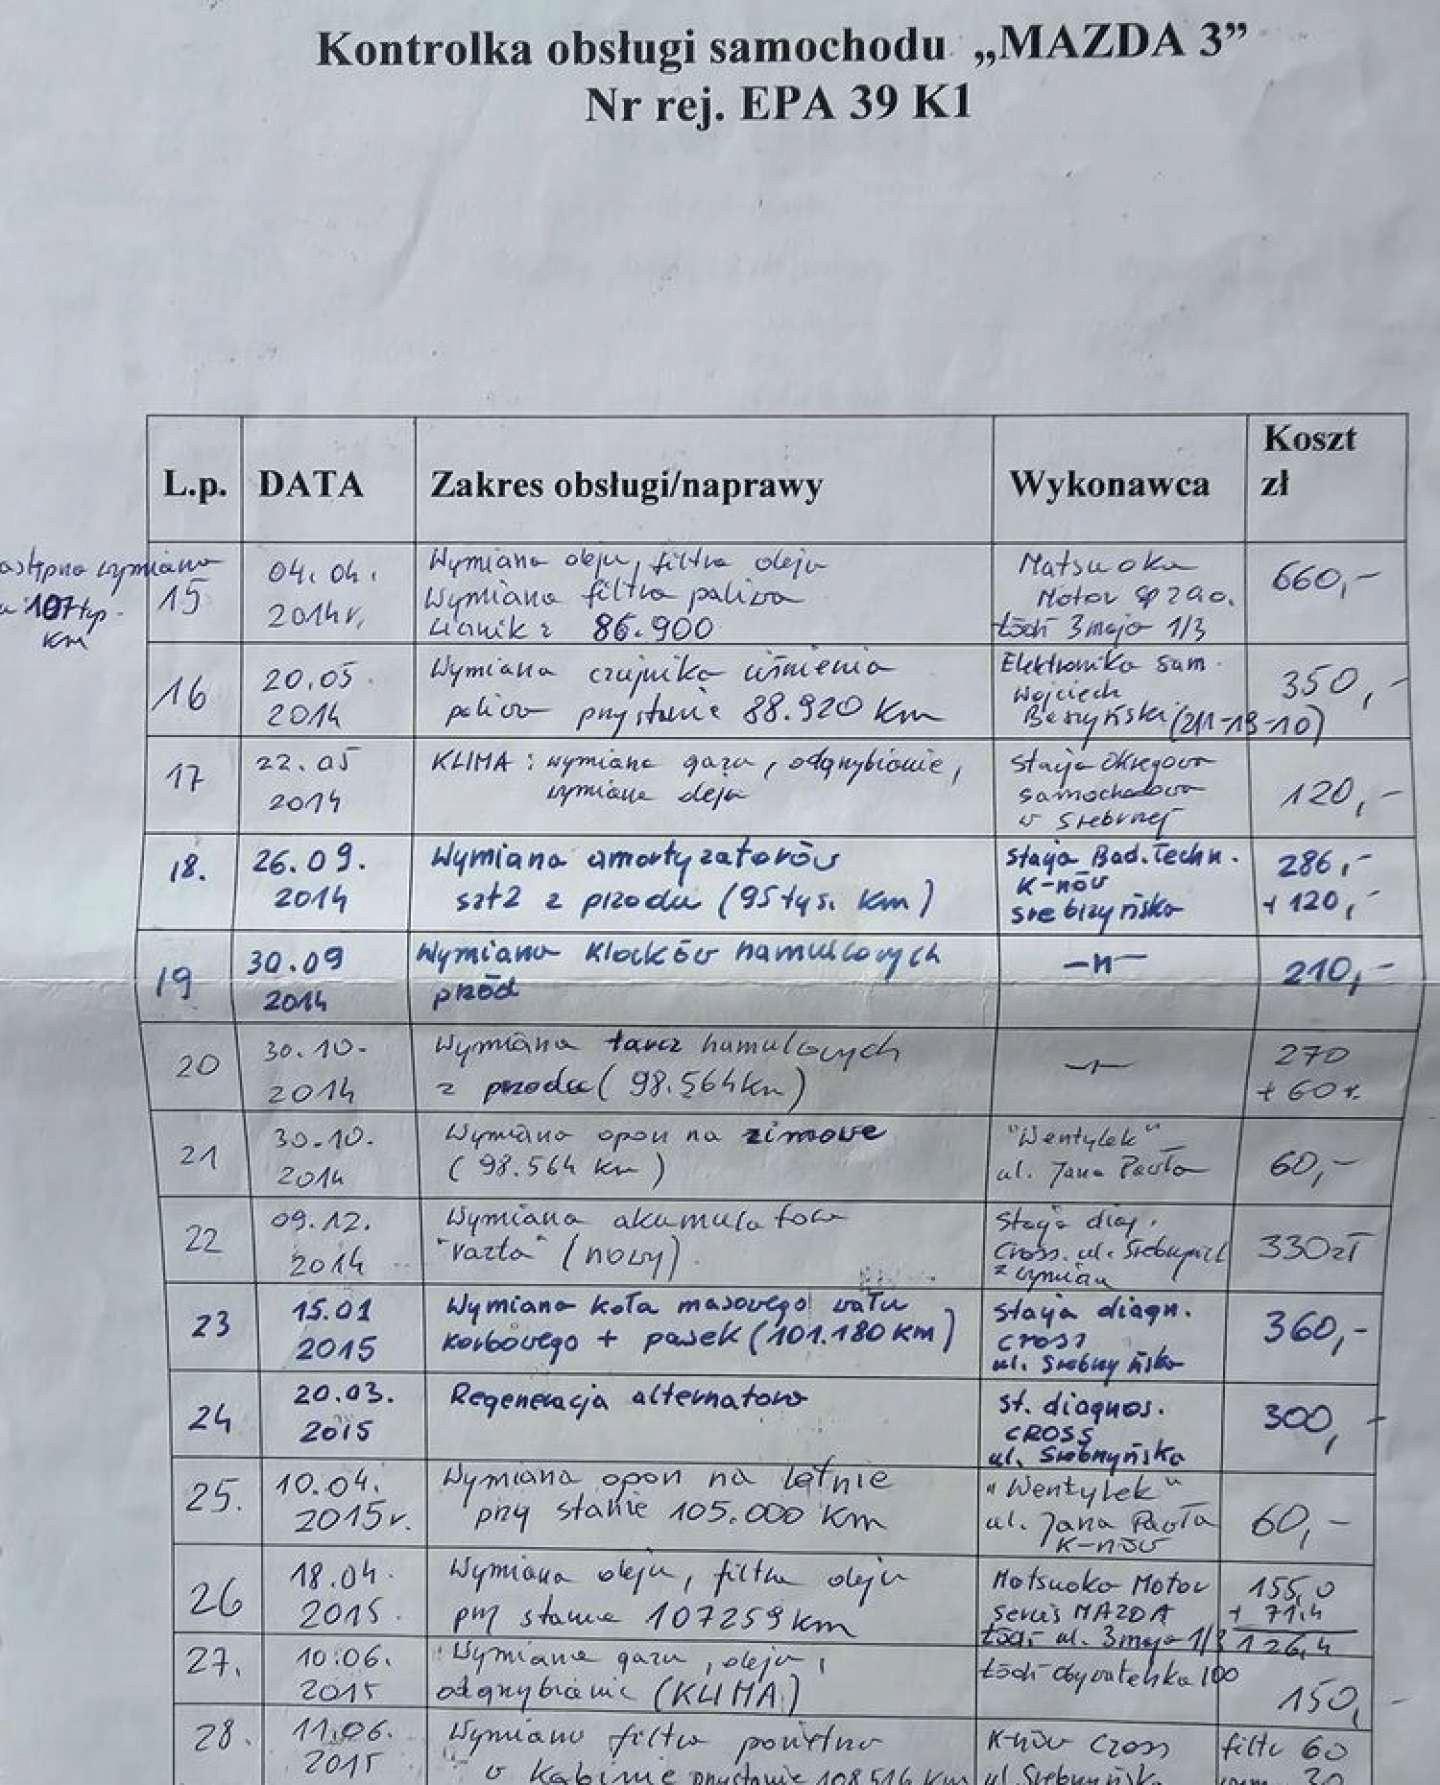 Kontrolka obsługi samochodu „MAZDA 3”
Nr rej. EPA 39 K1
L.p. DATA Zakres obsługi/naprawy Wykonawca Koszt zł
wymiana
107 tyś.
km
15 04.04. 2014r. Wymiana oleju, filtra oleju
Wymiana filtra paliwa
Licznik: 86.900
Matsuoka
Motor Sp z o.o.
Łódź 3 maja 1/3
660,-
16 20.05. 2014 Wymiana czujnika ciśnienia
paliwa przy stanie 88.920 km
Elektronika Sam.
Wojciech
(211-13-10)
350,-
17 22.05 2014 KLIMA: wymiana gazu, odgrzybianie,
wymiana oleju
Stacja Okręgowa
samochodowa
w Srebrnej
120,-
18. 26.09. 2014 Wymiana amortyzatorów
szt 2 z przodu (95 tyś. km)
Stacja Bad. Techn.
K-nów
Srebrzyńska
286,-
+ 120,-
19 30.09 2014 Wymiana klocków hamulcowych
przód
-11-
210,-
20 30.10. 2014 Wymiana tarcz hamulcowych
z przodu (98.564 km)
270
+ 60
21 30.10. 2014 Wymiana opon na zimowe
(98.564 km)
"Wentylek"
ul. Jana Pawła
60,-
22 09.12. 2014 Wymiana akumulatora
"Varta" (nowy).
Stacja diag.
Cross. ul.
z wymianą
330 zł
23 15.01 2015 Wymiana koła masowego wału
korbowego + pasek (101.180 km)
Stacja diagn.
cross
ul. Srebrzyńska
360,-
24 20.03. 2015 Regeneracja alternatora
St. diagnos.
CROSS
ul. Srebrzyńska
300,-
25. 10.04. 2015r. Wymiana opon na letnie
przy stanie 105.000 km
"Wentylek"
ul. Jana Pawła
K-nów
60,-
26 18.04. 2015. Wymiana oleju, filtra oleju
przy stanie 107259 km
Matsuoka Motor
serwis MAZDA
Łódź ul. 3 maja 1/3
155,0
+ 71,4
126,4
27. 10.06. 2015 Wymiana gazu, oleju,
odgrzybianie (KLIMA)
Łódź Obywatelska 100
150,-
28. 11.06. 2015 Wymiana filtra powietrza
w kabinie przy stanie 108.516 km
K-nów Cross
filtr 60